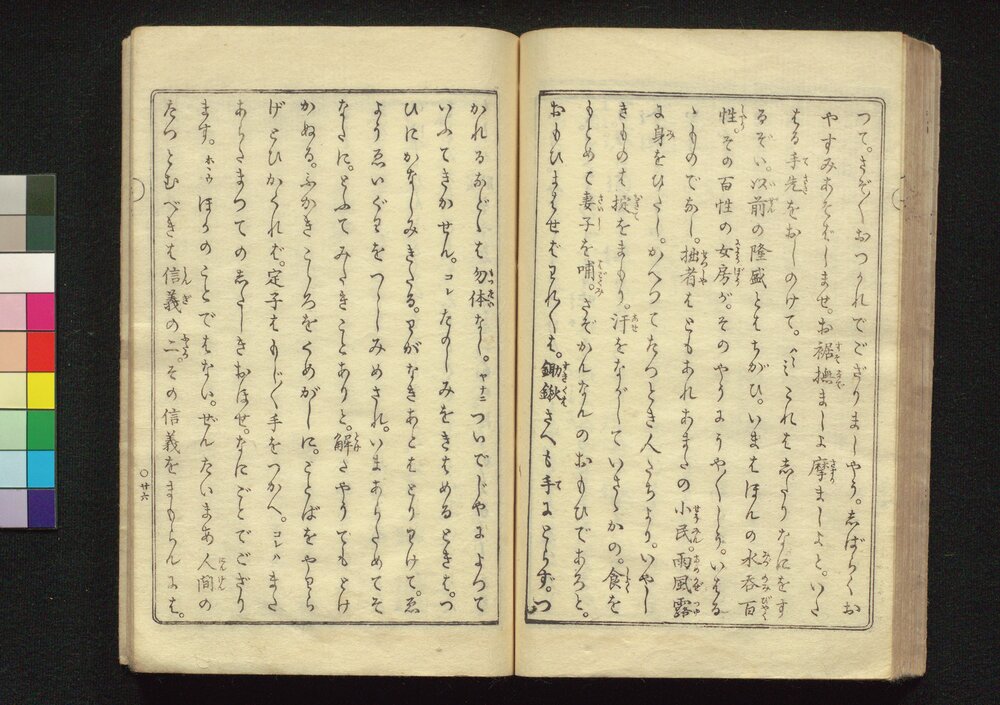 つて。さぞ〳〵おつかれでござりましやう。しばらくお
やすみあそばしませ。お裾撫ましよ摩ましよと。いた
はる手先をおしのけて。ハミこれはしたりなにをす
るぞい。以前の隆盛とはちがひ。いまはほんの水呑百
性。その百性の女房が。そのやうにうや〳〵しう。いはる
ゝものでなし。拙者はともあれあまたの小民。雨風露
に身をひたし。かへつてたつとき人たちより。いやし
きものは掟をまもり。汗をながしていさゝかの。食を
もとめて妻子を哺。さぞかんなんのおもひであろと。
おもひまはせばわれ〳〵は。鋤鍬さへも手にとらず。つ
かれるなどゝは勿体なし。ヤナニついでじやによつて
いふてきかせん。コレたのしみをきはめるときは。つ
ひにかなしみきたる。わがなきあとはとりわけて。ゑ
ようゑいぐわをつゝしみめされ。いまあらためてそ
なたに。とふてみたきことありと。解たやうでもとけ
かぬる。ふかきこゝろをくめがしに。ことばをやわら
げとひかくれば。定子はもじ〳〵手をつかへ。コレハまた
あらたまつてのあたしきおほせ。なにごとでござり
ます。ホヽウほかのことでもない。ぜんたいまあ人間の
たつとむべきは信義の二。その信義をまもらんには。
○廿六